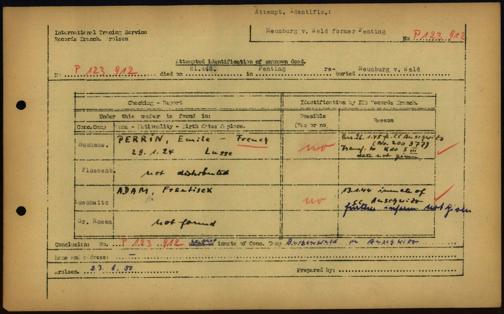 Attempt. Identific.:
International Tracing Service
Records Branch. Arolsen
Neunburg v. Wald former Penting
No P 123 912
Attempted identification of unknown dead.
No. P 123 912 died on in Penting re- buried Neunburg v. Wald
Checking - Report
Identification by ITS Records Branch.
Under this number is found in:
Possible
(Yes or no)
Reason
Conc. Camp Name - Nationality - Birth date & place.
PERRIN, Emile French
28.1.24 Lusse
no
date not given
Flossenb. not distributed
Auschwitz ADAM, Frantisek
no
inmate of
Auschwitz
further inform. not given
Gr. Rosen not found
Conclusion: No. P 123 912 inmate of Conc. Camp Buchenwald or Auschwitz
Name and address:
Arolsen, 23.6.50 Prepared by: